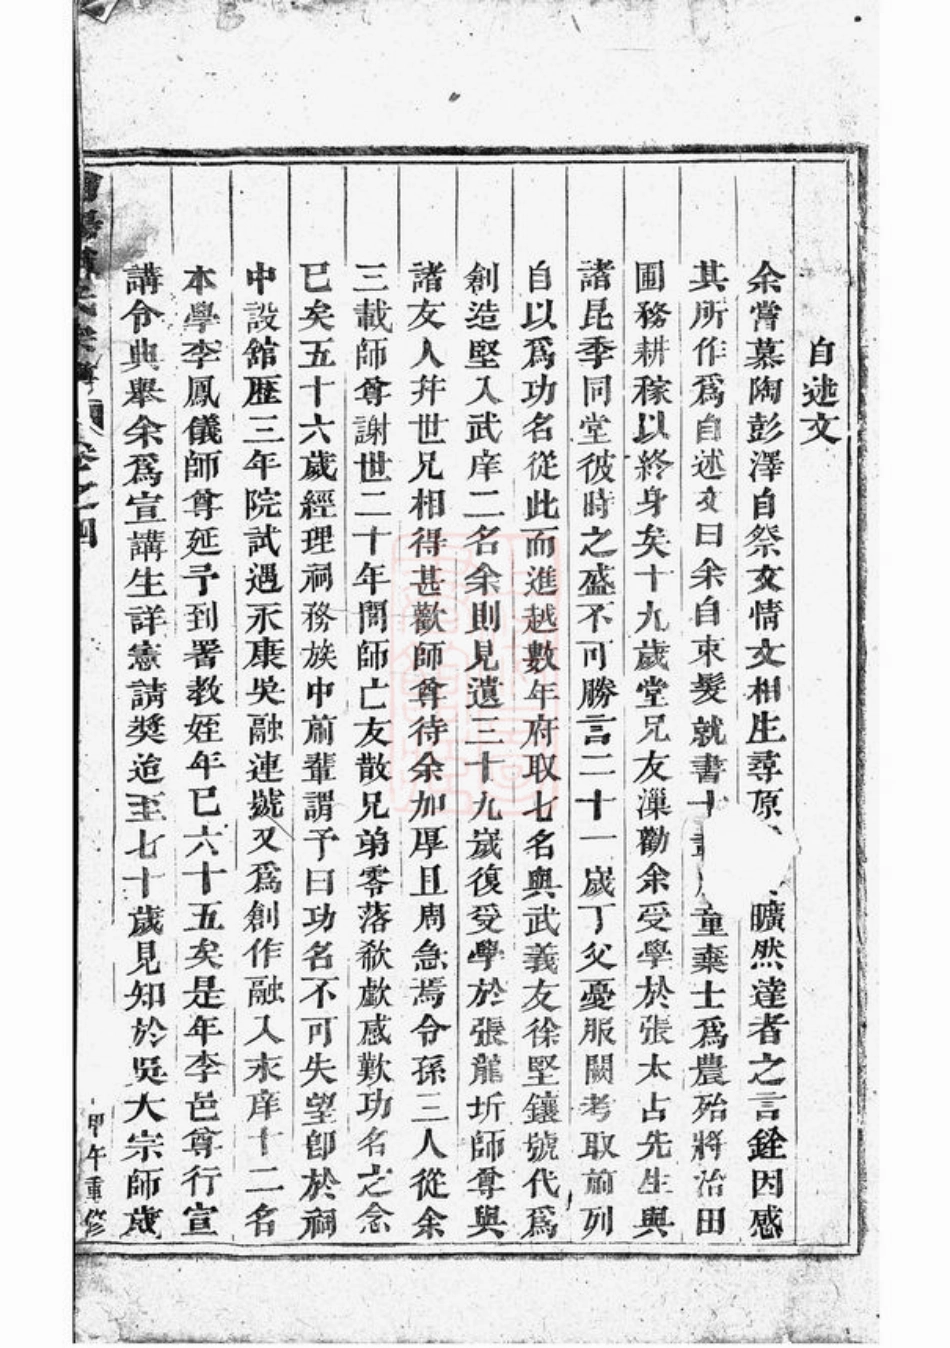 自述文
余嘗慕陶彭澤自祭文情文相生尋原曠然達者之言銓因感
其所作爲自述文曰余自束髮就書十童棄士爲農殆將治田
圃務耕稼以終身矣十九歲堂兄友濂勸余受學於張太占先生與
諸昆季同堂彼時之盛不可勝言二十一歲丁父憂服闋考取前列
自以爲功名從此而進越數年府取七名與武義友徐堅鑲號代爲
創造堅入武庠二名余則見遺三十九歲復受學於張龍圻師尊與
諸友人幷世兄相得甚歡師尊待余加厚且周急焉令孫三人從余
三載師尊謝世二十年間師亡友散兄弟零落欷歔感歎功名之念
已矣五十六歲經理祠務族中前輩謂予曰功名不可失望卽於祠
中設舘歷三年院試遇永康吳融連號又爲創作融入永庠十二名
本學李鳳儀師尊延予到署教姪年已六十五矣是年李邑尊行宣
講令典舉余爲宣講生詳憲請獎迨至七十歲見知於吳大宗師歲
卷之四
甲午重修